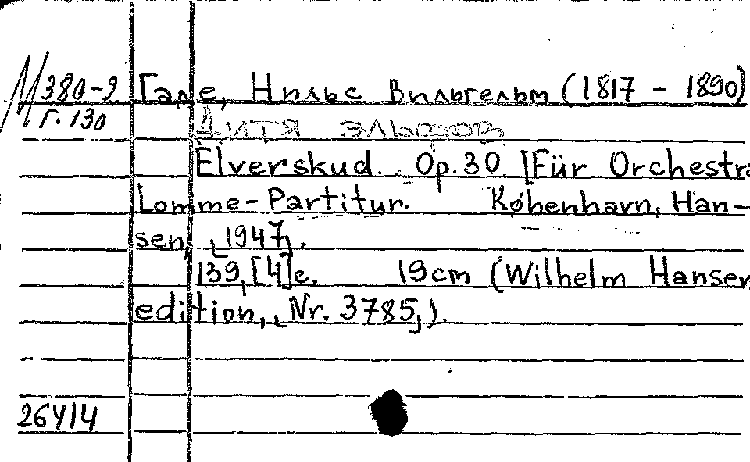 М 380-9 Гаде, Нильс Вильгельм (1817 - 1890)
Г. 130 Дитя эльфов
Elverskud. Op. 30. [Für Orchestra
Lomme-Partitur. København, Han-
sen, [1947].
139, [4] c. 19 cm (Wilhelm Hansen
edition, [Nr. 3785]).
264/4